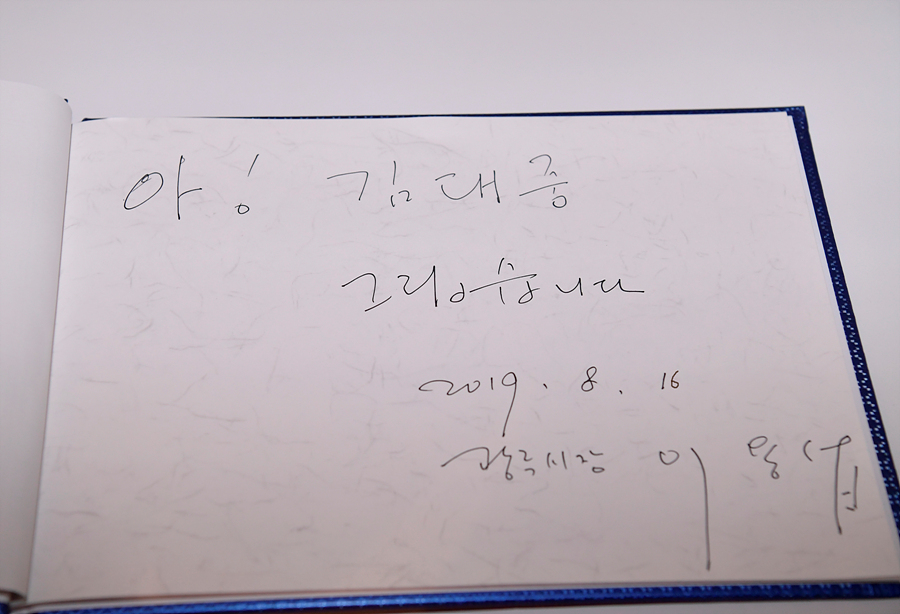 아! 김대중
그립습니다
2019. 8. 16
광주시장 이용섭